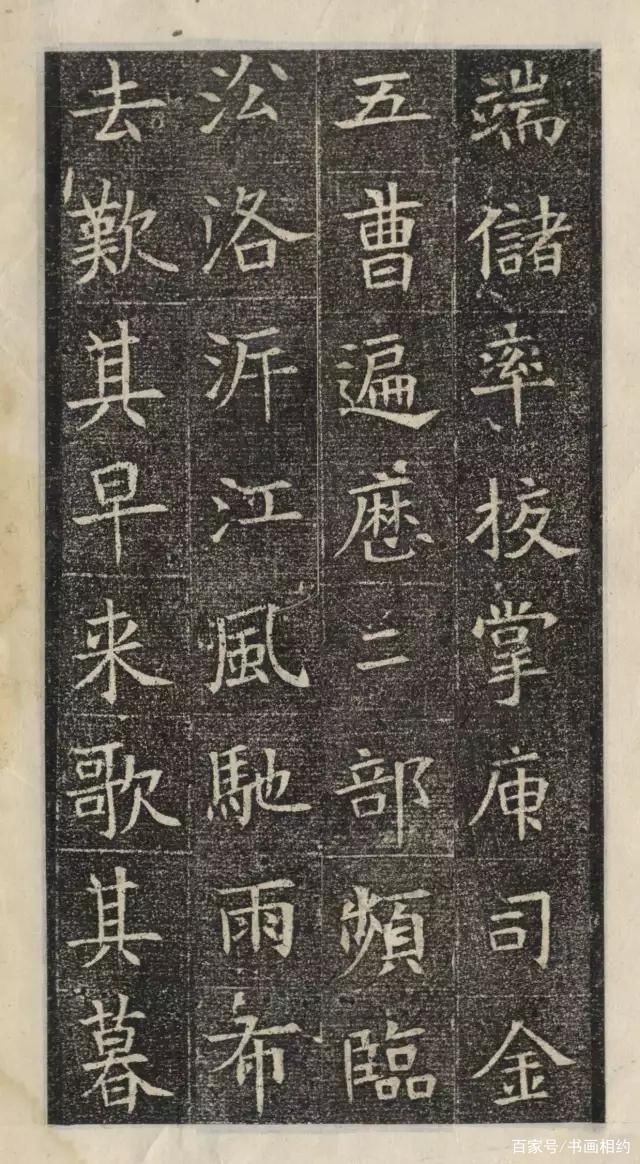 端儲率校掌庾司金
五曹遍歷二部頻臨
㳂洛泝江風馳雨布
去歎其早来歌其暮
百家号/书画相约